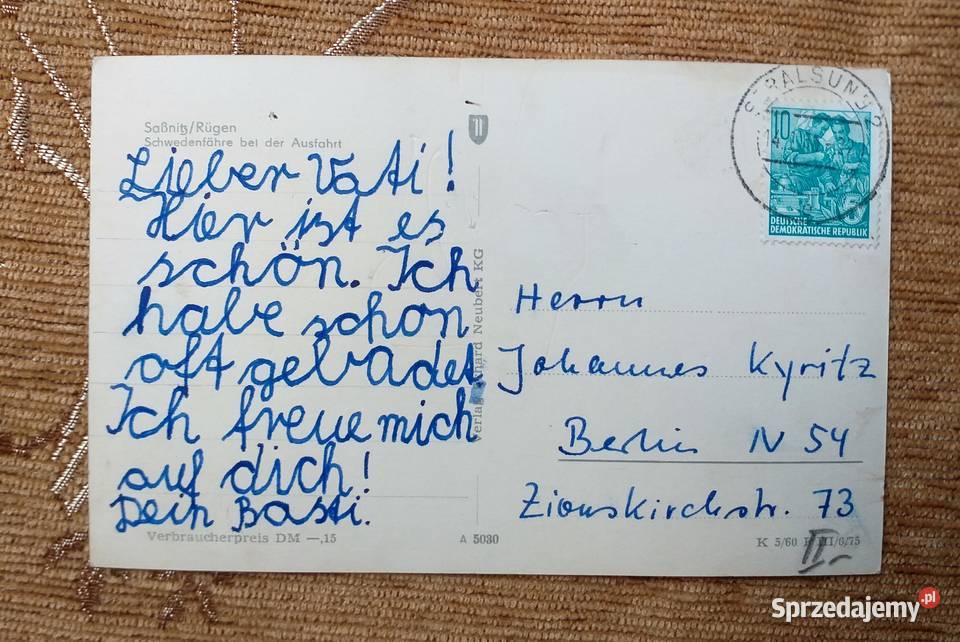 Saßnitz/Rügen
Schwedenfähre bei der Ausfahrt
Lieber Vati!
Hier ist es
schön. Ich
habe schon
oft gebadet.
Ich freue mich
auf dich!
Dein Basti.
Verbraucherpreis DM —,15
A 5030
Verlag Erhard Neubert KG
STRALSUND
10
5
DEUTSCHE
DEMOKRATISCHE REPUBLIK
Herrn
Johannes Kyritz
Berlin N 54
Zionskirchstr. 73
K 5/60 III/6/75
II-
Sprzedajemy.pl